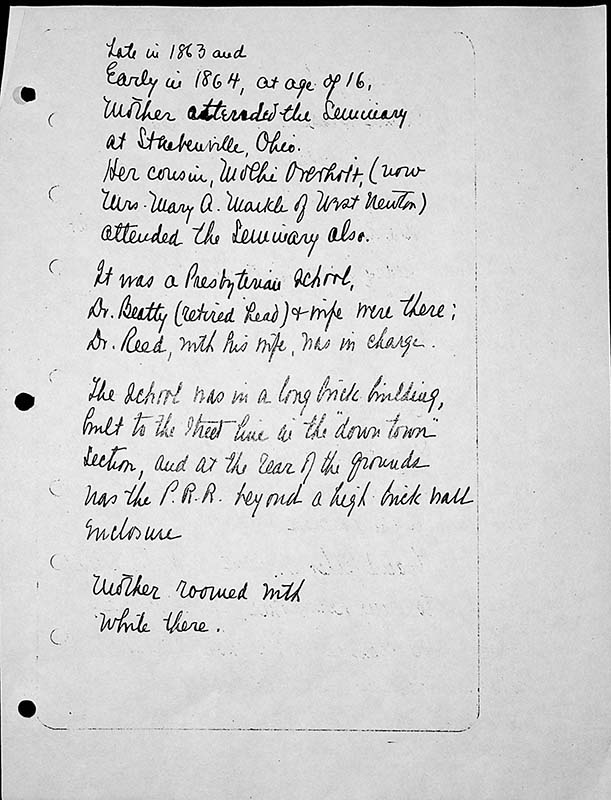 Late in 1863 and
Early in 1864, at age of 16,
Mother attended the Seminary
at Steubenville, Ohio.
Her cousin, Mollie Overholt, (now
Mrs. Mary A. Markle of West Newton)
attended the Seminary also.
It was a Presbyterian School,
Dr. Beatty (retired head) & wife were there;
Dr. Reed, with his wife, was in charge.
The School was in a long brick building,
built to the street line in the "down town"
section, and at the rear of the grounds
was the P.R.R. beyond a high brick wall
enclosure
Mother roomed with
White there.